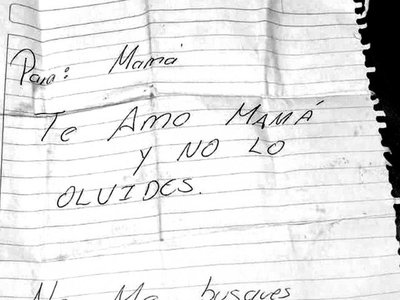 Para: Mamá
Te Amo MAMÁ
Y NO LO
OLVIDES.
No Me busques